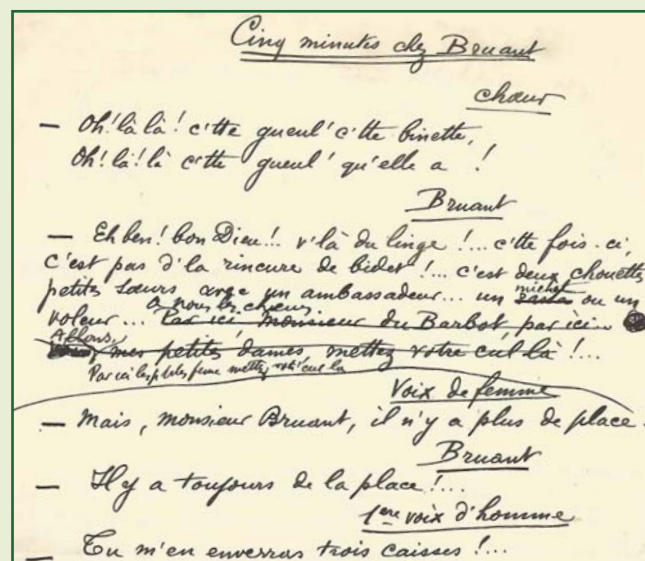 Cinq minutes chez Bruant
chœur
— Oh! là là! c'tte gueul' c'tte binette,
Oh! là! là c'tte gueul' qu'elle a !
Bruant
— Eh ben! bon Dieu!.. v'là du linge !... c'tte fois-ci,
c'est pas d'la rincure de bidet !... c'est deux chouettes
petites sœurs avec un ambassadeur... un michet ou un
à nous les chieurs
voleur... Par ici monsieur du Barbot par ici
Allons,
mes petites dames, mettez votre cul là !...
Par ici les ptites femme mettez voti' cul la
Voix de femme
— Mais, monsieur Bruant, il n'y a plus de place
Bruant
— Il y a toujours de la place !...
1ère voix d'homme
— Tu m'en enverras trois caisses !...